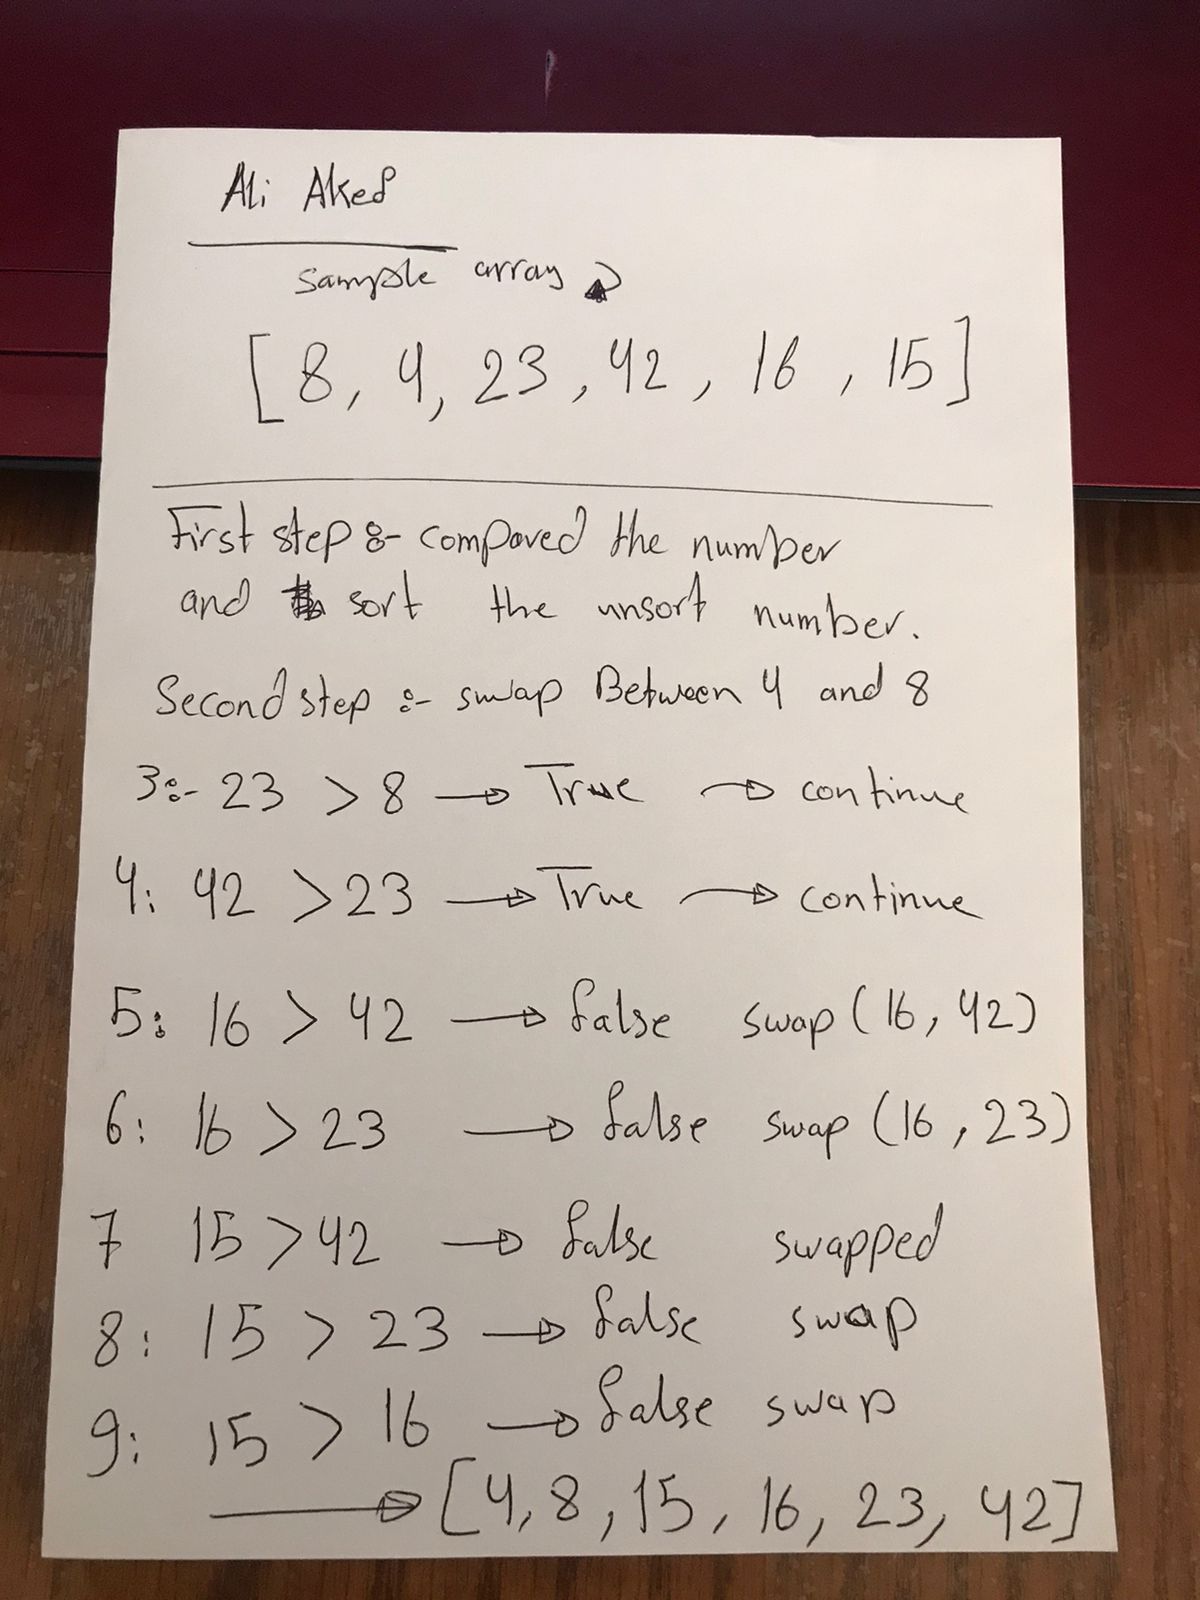 Ali Aked
sample array
[8, 4, 23, 42, 16, 15]
First step :- compared the number
and sort the unsort number.
Second step :- swap Between 4 and 8
3:- 23 > 8 → True → continue
4: 42 > 23 → True → continue
5: 16 > 42 → false swap (16, 42)
6: 16 > 23 → false swap (16, 23)
7 15 > 42 → false swapped
8: 15 > 23 → false swap
9: 15 > 16 → false swap
→ [4, 8, 15, 16, 23, 42]